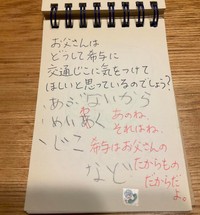 お父さんは
どうして希与に
交通じこに気をつけて
ほしいと思っているのでしょう?
あぶないから
めいわく
じこ
など
あのね、
それはね、
希与はお父さんの
たからもの
だからだ
よ。